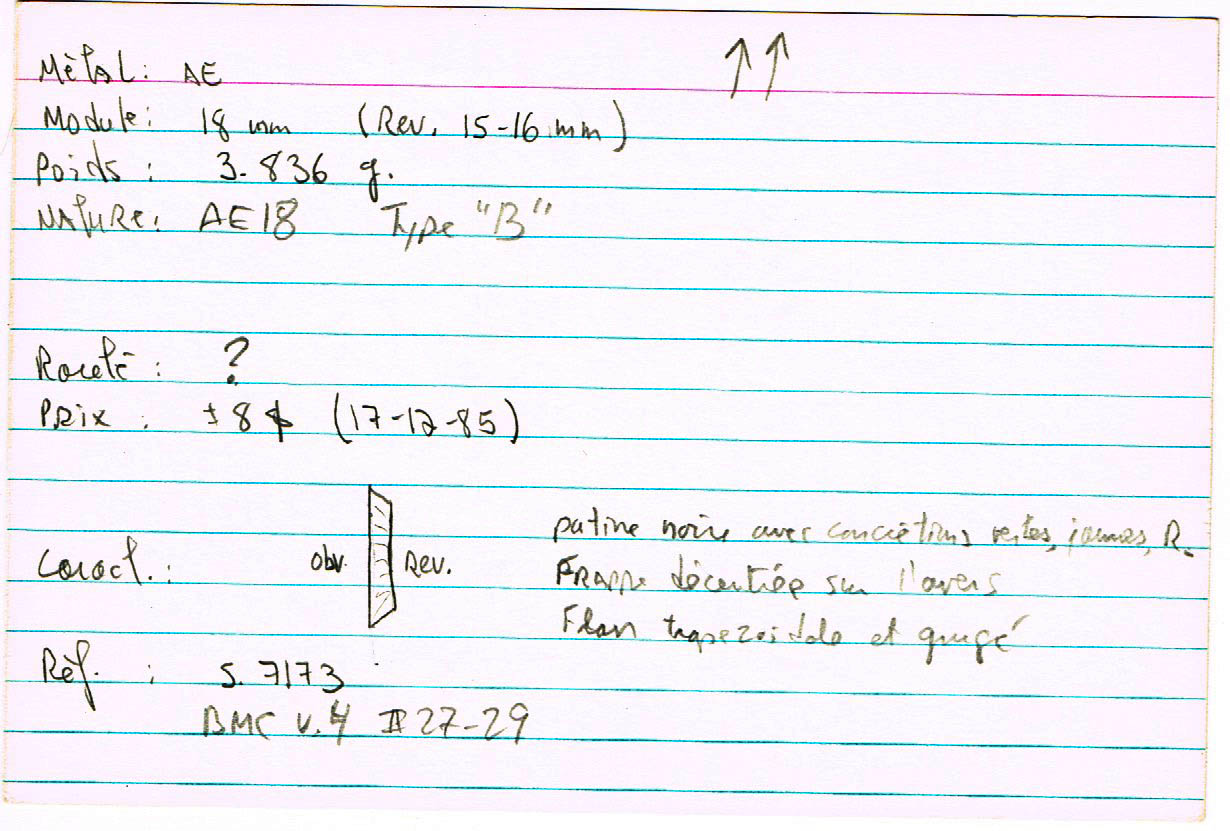 ↑↑
Mètal: AE
Module: 18 mm (Rev. 15-16 mm)
Poids: 3.836 g.
NATURE: AE18 Type "B"
Rareté: ?
PRix: ±8$ (17-12-85)
patine noire avec concrétions vertes, jaunes, R.
Caract.: Obv. Rev. FRAPPE décentrée sur l'avers
Flan trapezoidale et
Réf.: S. 7173
BMC V.4 # 27-29